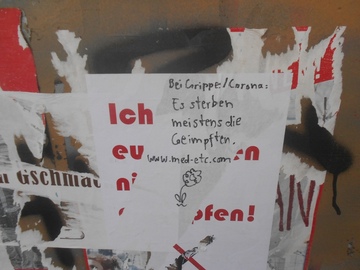 Bei Grippe/Corona:
Es sterben
meistens die
Geimpften.
www.med-etc.com
Ich
eu en
ni
pfen!
Gschmac